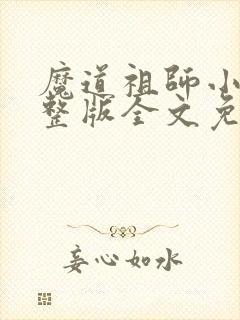 魔道祖師小
整版全文免
妄心如水